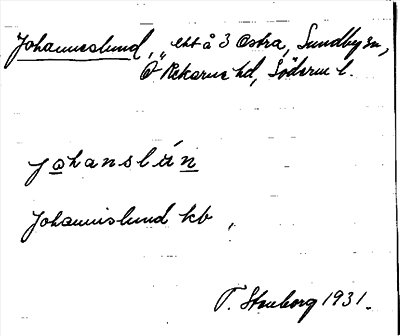 Johanneslund, „ ebt å 3 Östra, Sundby sn,
Ö Rekarne hd, Söderm l.
johanslún
Johannislund kb,
T. Stenborg 1931.